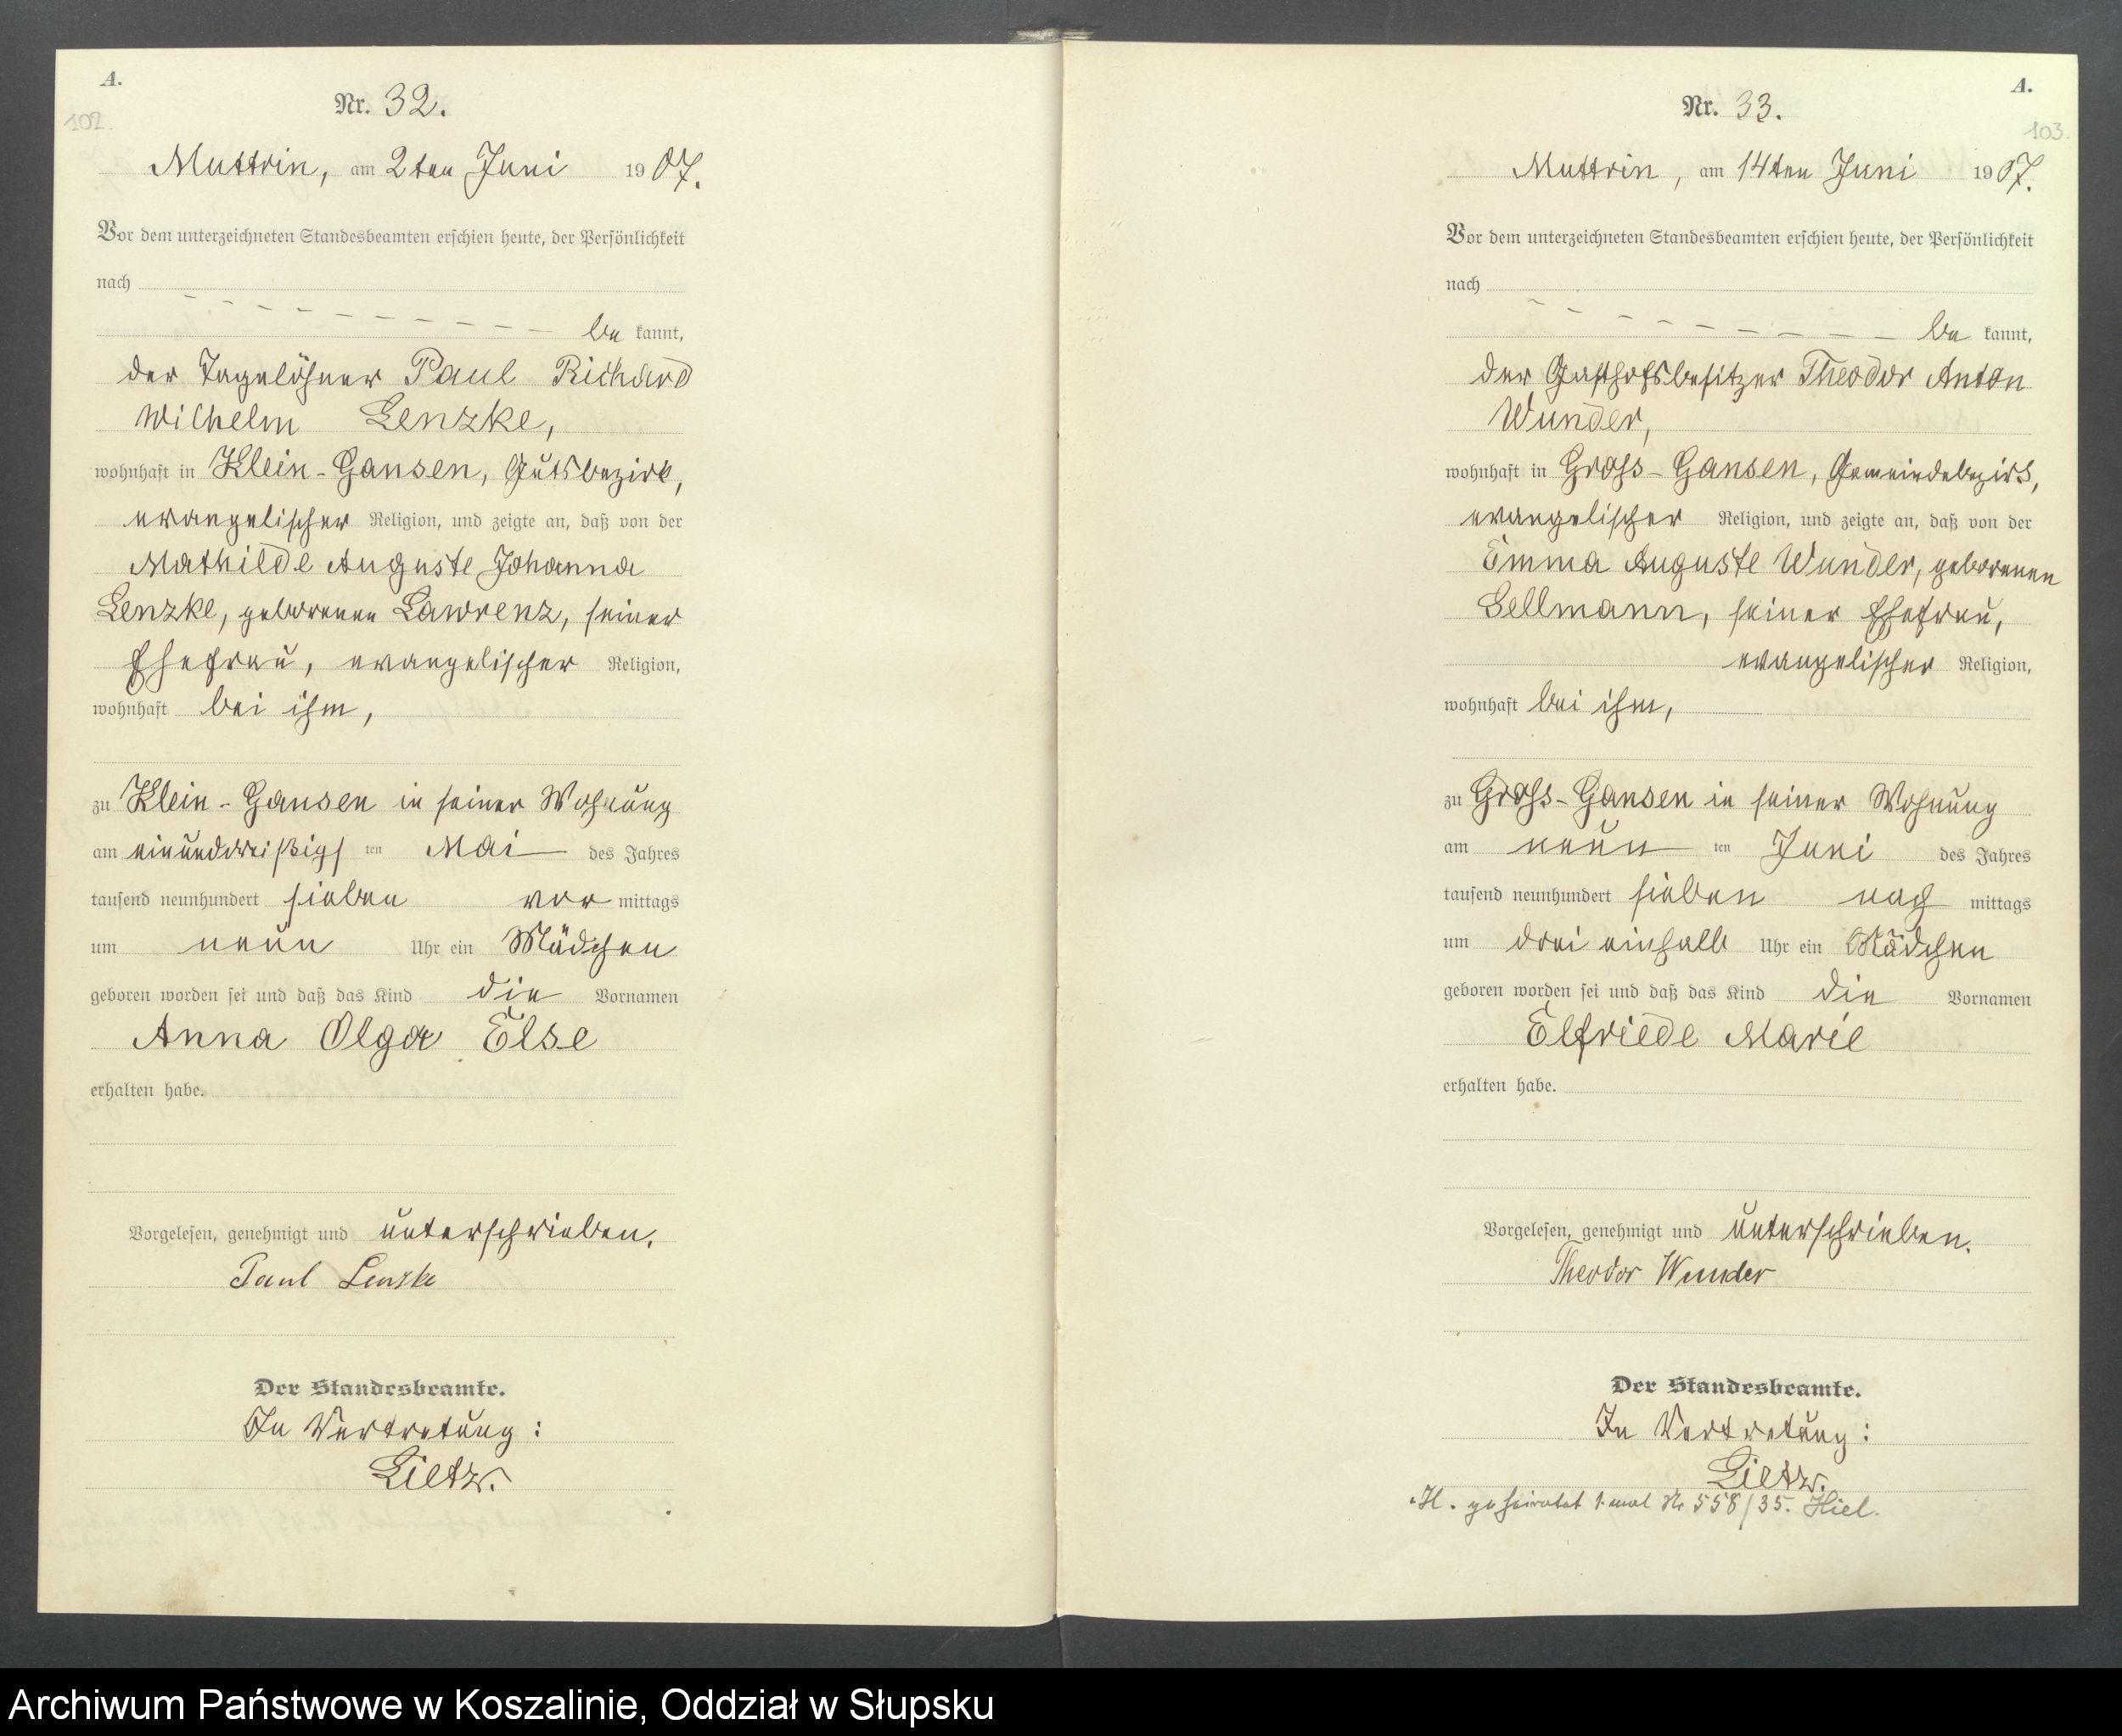 A.
102.
Nr. 32.
Muttrin, am 2ten Juni 1907.
Vor dem unterzeichneten Standesbeamten erschien heute, der Persönlichkeit
nach
be kannt,
der Tagelöhner Paul Richard
Wilhelm Lenzke,
wohnhaft in Klein-Gansen, Gutsbezirk,
evangelischer Religion, und zeigte an, daß von der
Mathilde Auguste Johanna
Lenzke, geborenen Lawrenz, seiner
Ehefrau, evangelischer Religion,
wohnhaft bei ihm,
zu Klein-Gansen in seiner Wohnung
am einunddreißigs ten Mai des Jahres
tausend neunhundert sieben vor mittags
um neun Uhr ein Mädchen
geboren worden sei und daß das Kind die Vornamen
Anna Olga Else
erhalten habe.
Vorgelesen, genehmigt und unterschrieben.
Paul Lenzke
Der Standesbeamte.
In Vertretung:
Lietz.
A.
103.
Nr. 33.
Muttrin, am 14ten Juni 1907.
Vor dem unterzeichneten Standesbeamten erschien heute, der Persönlichkeit
nach
be kannt,
der Gasthofsbesitzer Theodor Anton
Wunder,
wohnhaft in Gross-Gansen, Gemeindebezirk,
evangelischer Religion, und zeigte an, daß von der
Emma Auguste Wunder, geborenen
Sellmann, seiner Ehefrau,
evangelischer Religion,
wohnhaft bei ihm,
zu Gross-Gansen in seiner Wohnung
am neun ten Juni des Jahres
tausend neunhundert sieben nach mittags
um drei einhalb Uhr ein Mädchen
geboren worden sei und daß das Kind die Vornamen
Elfriede Marie
erhalten habe.
Vorgelesen, genehmigt und unterschrieben.
Theodor Wunder
Der Standesbeamte.
In Vertretung:
Lietz.
H. geheiratet 1. mal Nr 558/35. Kiel.
Archiwum Państwowe w Koszalinie, Oddział w Słupsku